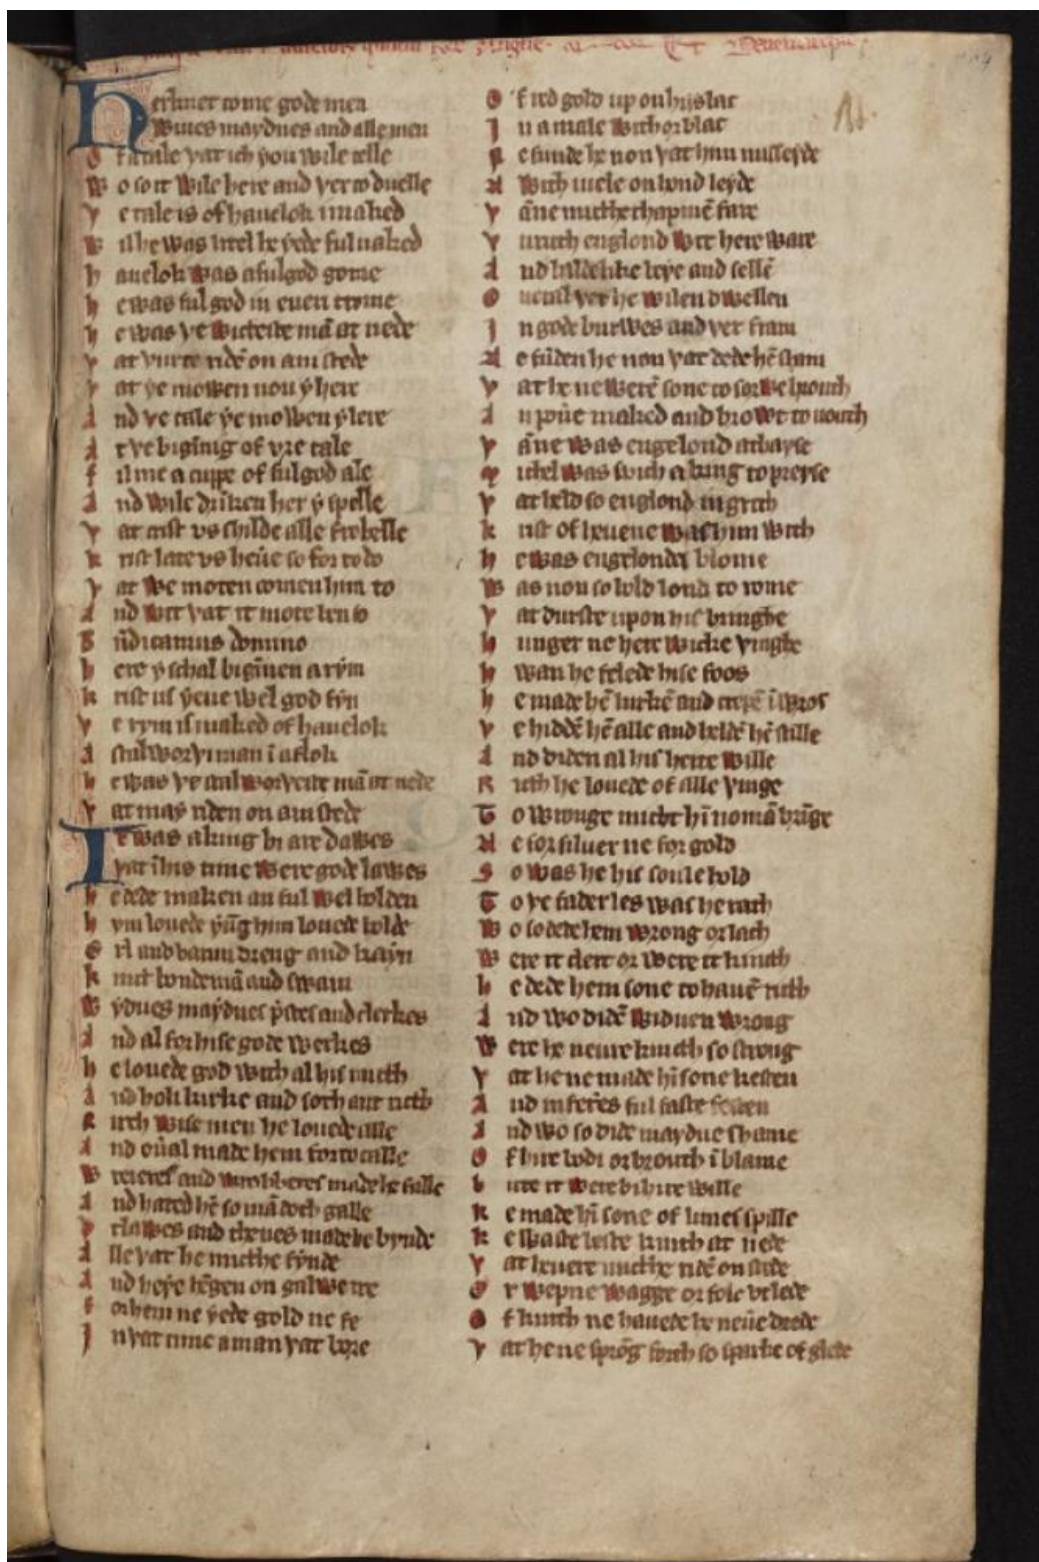 Herknet to me gode men
Wiues maydnes and alle men
Of a tale þat ich you wile telle
Wo so it wile here and þerto duelle
Þe tale is of hauelok imaked
Wil he was litel he yede ful naked
Hauelok was a ful god gome
He was ful god in eueri trome
He was þe wicteste mā at nede
Þat þurte ridē on ani stede
Þat ye mowen nou yhere
And þe tale ye mowen ylere
At þe biginīg of vre tale
Fil me a cuppe of ful god ale
And wile drīken her y spelle
Þat crist vs shilde alle fro helle
Krist late vs heūe so for to do
Þat we moten comen him to
And wit þat it mote ben so
Bn̄dicamus domino
Here y schal biginnen a rym
Krist us yeue wel god fyn
Þe rym is maked of hauelok
A stalworþi man ī a flok
He was þe stalworþeste mā at nede
Þat may riden on ani stede
It was a king bi are dawes
Þat ī his time were gode lawes
He dede maken an ful wel holden
Hym louede yūg him louede holde
Erl and barun dreng and kayn
Knict bondemā and swain
Wydues maydnes p̄stes and clerkes
And al for hise gode werkes
He louede god with al his micth
And holi kirke and soth ant ricth
Ricth wise men he louede alle
And oūal made hem forto calle
Wreieres and wrobberes made he falle
And hated hē so mā doth galle
Vtlawes and theues made he bynde
Alle þat he micthe fynde
And heye hēgen on galwe tre
For hem ne yede gold ne fe
In þat time a man þat bore
Of red gold upon hijs bac
In a male with or blac
Ne funde he non þat him misseyde
N with iuele on hond leyde
Þāne micthe chapmē fare
Þuruth englond wit here ware
And baldelike beye and sellē
Oueral þer he wilen dwellen
In gode burwes and þer fram
Ne fūden he non þat dede hē sham
Þat he ne werē sone to sorwe brouth
An pouē maked and browt to nouth
Þāne was engelond athayse
Michel was svich a king to preyse
Þat held so englond in grith
Krist of heuene was him with
He was engelondes blome
Was non so bold lond to rome
Þat durste upon his bringhe
Hunger ne here wicke þinghe
Hwan he felede hise foos
He made hē lurkē and crepē ī wros
Þe hiddē hē alle and heldē hē stille
And diden al his herte wille
Ricth he louede of alle þinge
To wronge micht hī no mā bring̅e
Ne for siluer ne for gold
So was he his soule hold
To þe faderles was he rath
Wo so dede hem wrong or lath
Were it clerc or were it knicth
He dede hem sone to hauē ricth
And wo didē widuen wrong
Were he neure knicth so strong
Þat he ne made hī sone kesten
And in feteres ful faste festen
And wo so dide maydne shame
Of hire bodi or brouth ī blame
Bute it were bi hire wille
He made hī sone of limes spille
Ke was te beste knith at nede
Þat heuere micthe ridē on stede
Or wepne wagge or folc vt lede
Of knith ne hauede he neūe drede
Þat he ne sprōg forth so sparke of glede